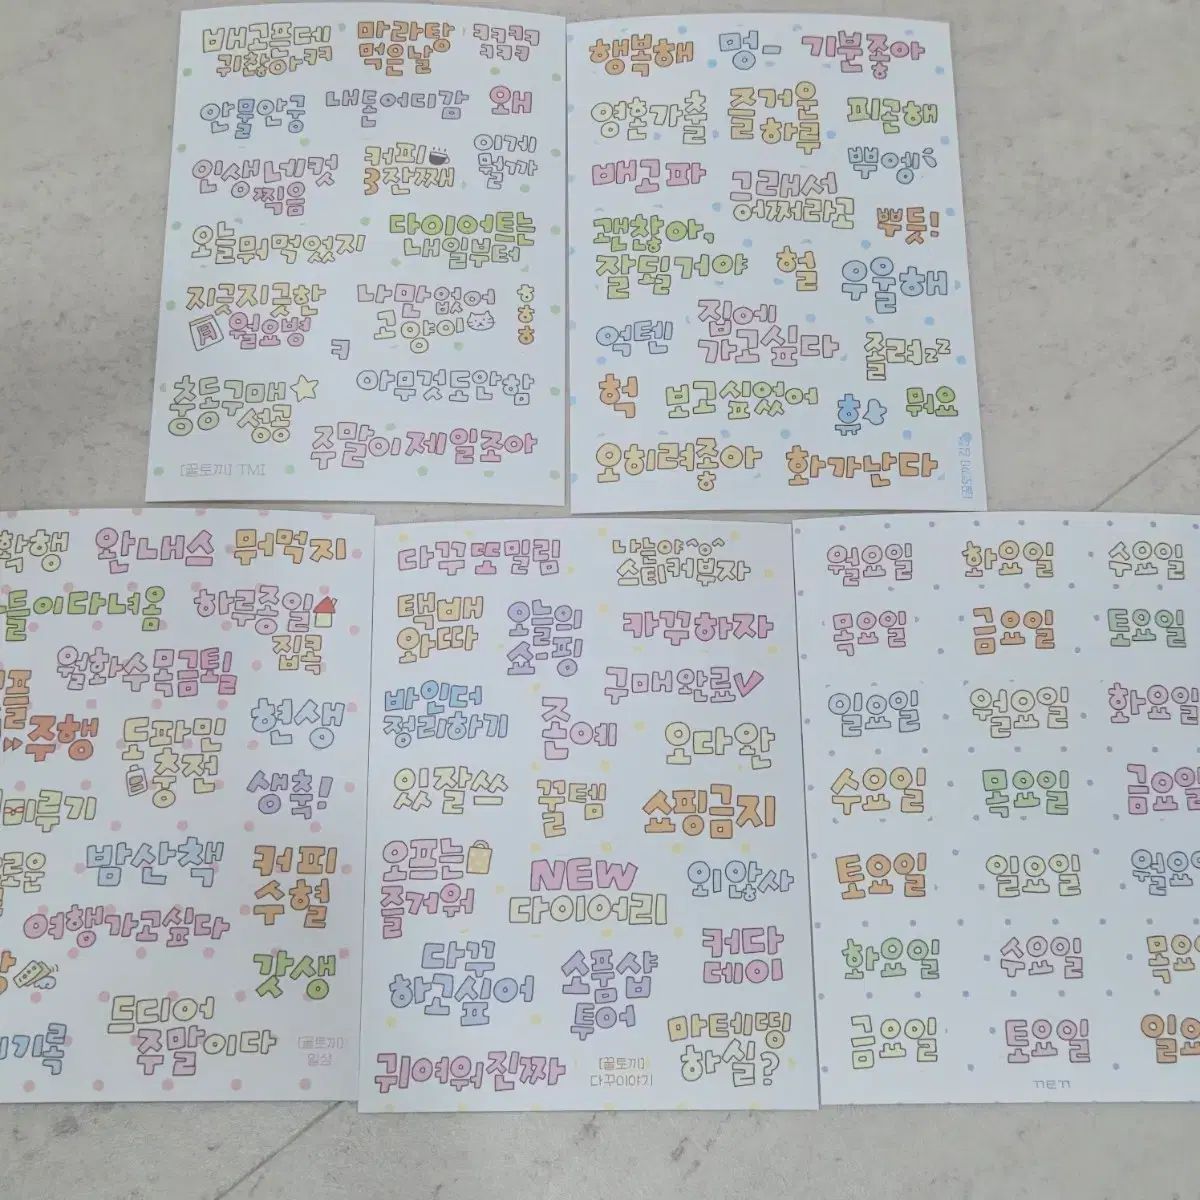 배고픈데
귀찮아ㅋㅋ
마라탕
먹은날
ㅋㅋㅋㅋ
ㅋㅋㅋㅋ
안물안궁
내돈어디감
왜
인생네컷
찍음
커피
3잔째
이게
뭘까
오늘뭐먹었지
다이어트는
내일부터
지긋지긋한
월요병
月
ㅋ
나만없어
고양이
ㅎ
ㅎ
ㅎ
충동구매
성공
아무것도안함
주말이제일조아
[꼴토끼] TMI
행복해
멍-
기분좋아
영혼가출
즐거운
하루
피곤해
배고파
그래서
어쩌라고
뿌엥
괜찮아,
잘될거야
헐
뿌듯!
우울해
억텐
집에
가고싶다
졸려zz
헉
보고싶었어
휴
뭐요
오히려좋아
화가난다
확행
완내스
뭐먹지
들이다녀옴
하루종일
집콕
월화수목금퇼
플
주행
도파민
충전
현생
생축!
미루기
로운
밤산책
커피
수혈
여행가고싶다
갓생
드디어
주말이다
기록
[꼴토끼]
일상
다꾸또밀림
나는야^o^
스티커부자
택배
와따
오늘의
쇼-핑
카꾸하자
바인더
정리하기
존예
구매완료
오다완
있잘쓰
꿀템
쇼핑금지
오프는
즐거워
NEW
다이어리
외않사
다꾸
하고싶어
소품샵
투어
커다
데이
마테띵
하실?
귀여워진짜
[꼴토끼]
다꾸이야기
월요일
화요일
수요일
목요일
금요일
토요일
일요일
월요일
화요일
수요일
목요일
금요일
토요일
일요일
월요일
화요일
수요일
목요
금요일
토요일
일요